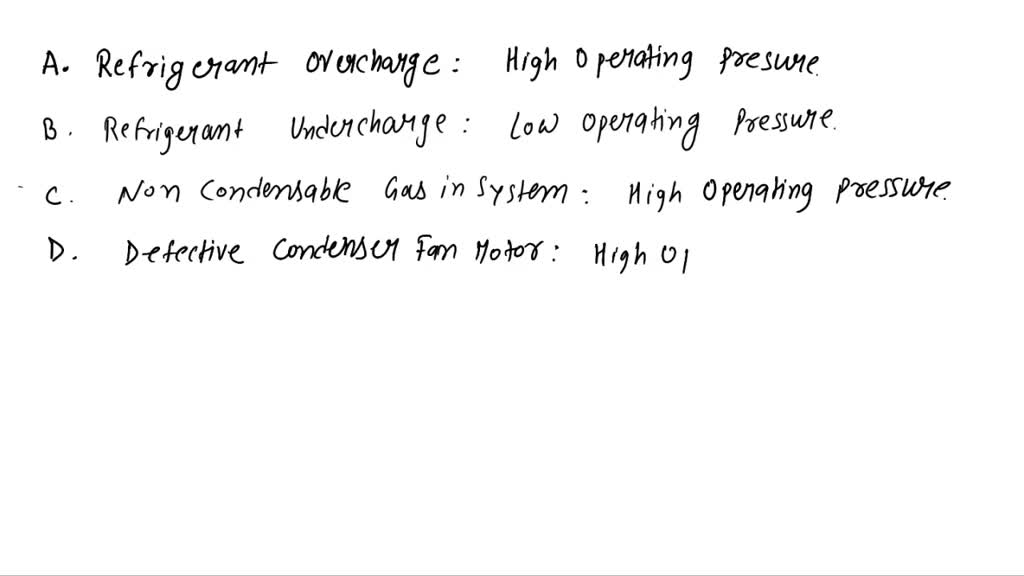 A. Refrigerant overcharge: High Operating Presure.
B. Refrigerant Undercharge: Low Operating Pressure.
C. Non Condensable Gas in System: High Operating Pressure.
D. Defective Condenser Fan Motor: High Op